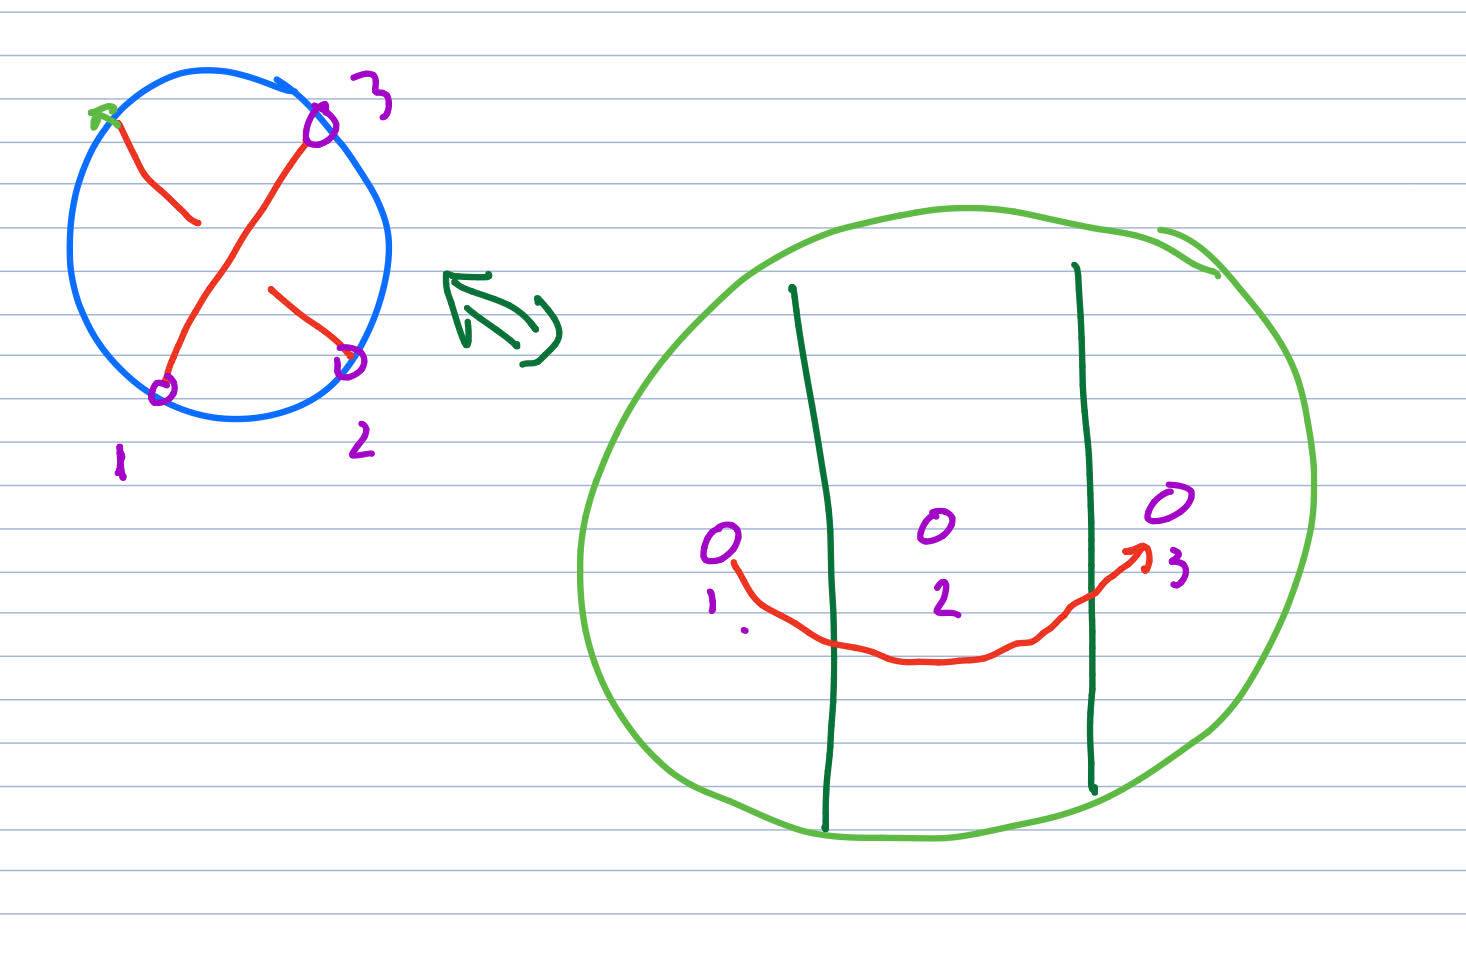 3
1 2
1 2 3